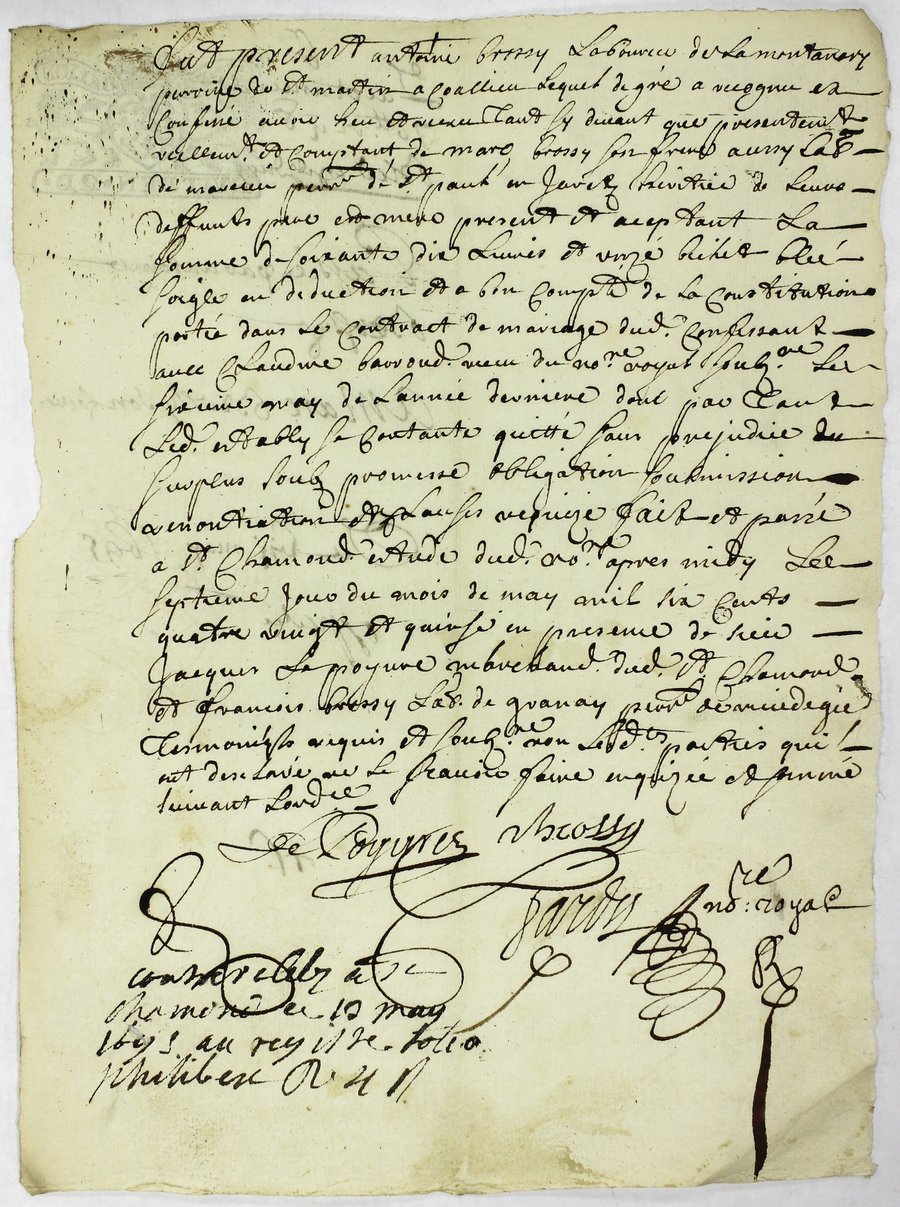 fut present antoine brossy Laboureur de Lamontanary
parroisse de st martin a Coallieu Lequel de gré a recognu et
Confessé avoir heu et receu Tant cy devant que presentemt
reellemt et Comptant de marc brossy son frere aussy Labr
de parrse de st paul en Jaretz heritier de Leurs
deffunts pere et mere present et aceptant La
somme de soixante dix Livres et bichet bled
soigle en deduction et a bon Compte de la Constitution
portée dans Le Contract de mariage dud. Confessant
avec Claudine barrond. receu du nore. royal soubzne Le
sixieme may de Lannée derniere dont par Tant
Led. estably se Contante quitté sans prejudice du
surplus soubz promesse obligation soubmission
renontiation et Clauses requize fait et passé
a st Chamond. estude dud. nore. apres midy Le
septieme Jour du mois de may mil six Cents
quatre vingt et quinse en presence de sieur
Jacques Lepoyure marchand. dud. st. Chamond
et francois brossy Labr. de granay parrse de
Tesmoings requis et soubznes non Lesdes parties qui
ont desclaré ne Le scavoir faire enquizes et sommé
suivant Lordce
De Poyvrez Brossy
Jardin nore: royal
controrelle a st
chamond le 12 may
1695 au registre folio
philibert R 4 s